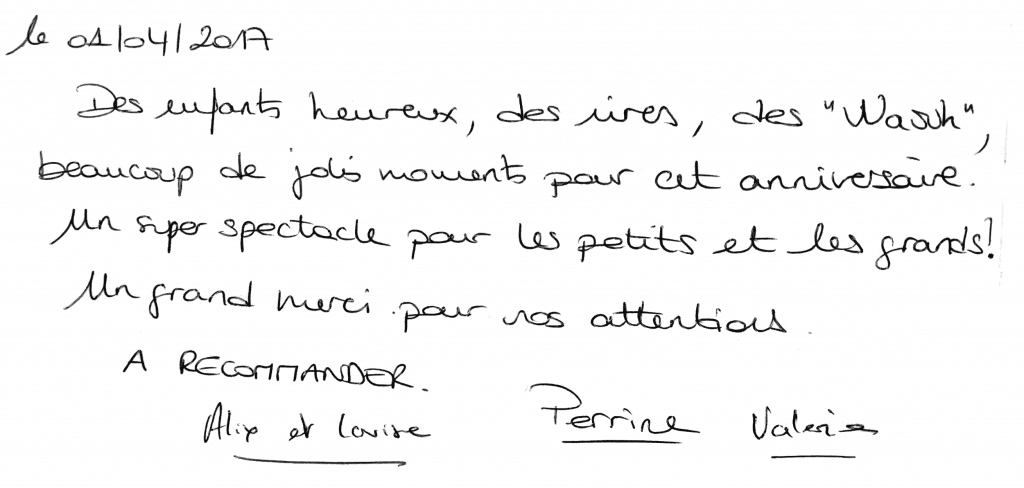 le 01/04/2017
Des enfants heureux, des rires, des "Waouh",
beaucoup de jolis moments pour cet anniversaire.
Un super spectacle pour les petits et les grands!
Un grand merci pour vos attentions.
A RECOMMANDER.
Alix et Louise Perrine Valérie